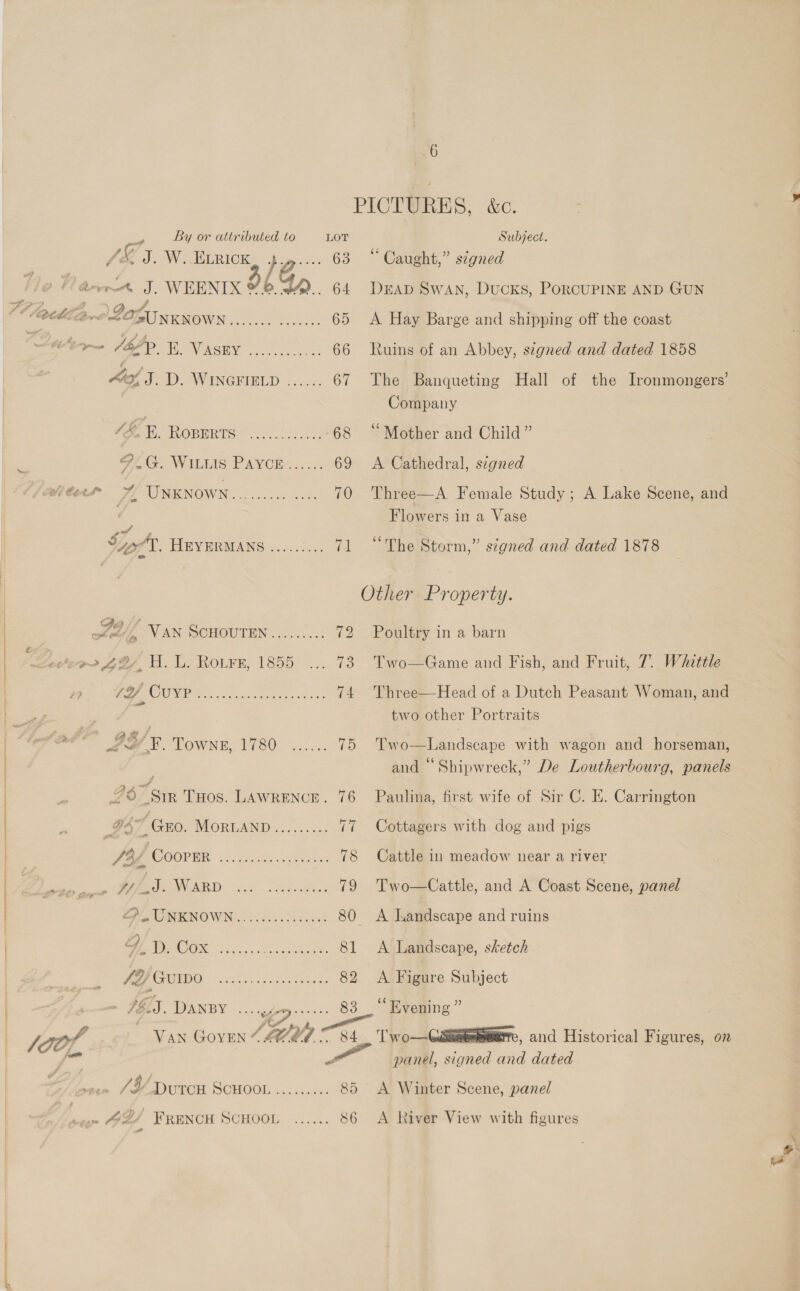 6
PICTURES, &c.
By or attributed to LOT Subject.
J. W. ELRICK .... 63 “Caught,” signed
J. WEENIX .. 64 DEAD SWAN, DUCKS, PORCUPINE AND GUN
UNKNOWN ....... ....... 65 A Hay Barge and shipping off the coast
P. E. VASEY ............ 66 Ruins of an Abbey, signed and dated 1858
J. D. WINGFIELD ...... 67 The Banqueting Hall of the Ironmongers’
Company
E. ROBERTS ............ 68 “Mother and Child”
G. WILLIS PAYCE ...... 69 A Cathedral, signed
UNKNOWN ......... .... 70 Three—A Female Study; A Lake Scene, and
Flowers in a Vase
T. HEYERMANS ......... 71 “The Storm,” signed and dated 1878
Other Property.
VAN SCHOUTEN ......... 72 Poultry in a barn
H. L. ROLFE, 1855 ... 73 Two—Game and Fish, and Fruit, T. Whittle
CUYP ..................... 74 Three—Head of a Dutch Peasant Woman, and
two other Portraits
F. TOWNE, 1780 ...... 75 Two—Landscape with wagon and horseman,
and “Shipwreck,” De Loutherbourg, panels
SIR THOS. LAWRENCE. 76 Paulina, first wife of Sir C. E. Carrington
GEO. MORLAND ......... 77 Cottagers with dog and pigs
COOPER .................. 78 Cattle in meadow near a river
J. WARD ... ............ 79 Two—Cattle, and A Coast Scene, panel
UNKNOWN ............... 80 A Landscape and ruins
D. COX .................. 81 A Landscape, sketch
GUIDO .................. 82 A Figure Subject
J. DANBY ............ 83 “Evening”
VAN GOYEN ... 84 Two— and Historical Figures, on
panel, signed and dated
DUTCH SCHOOL ......... 85 A Winter Scene, panel
FRENCH SCHOOL ...... 86 A River View with figures